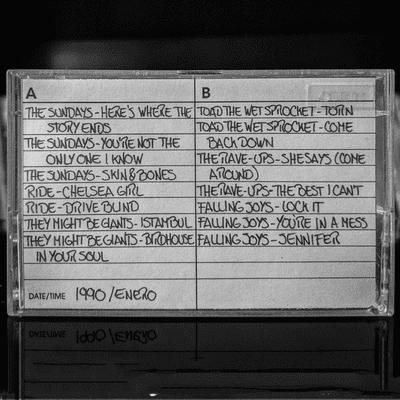 A
THE SUNDAYS-HERE'S WHERE THE
STORY ENDS
THE SUNDAYS-YOU'RE NOT THE
ONLY ONE I KNOW
THE SUNDAYS-SKIN & BONES
RIDE-CHELSEA GIRL
RIDE-DRIVE BLIND
THEY MIGHT BE GIANTS-ISTAMBUL
THEY MIGHT BE GIANTS-BIRDHOUSE
IN YOUR SOUL
B
TOAD THE WET SPROCKET-TORN
TOAD THE WET SPROCKET-COME
BACK DOWN
THE RAVE-UPS-SHE SAYS (COME
AROUND)
THE RAVE-UPS-THE BEST I CAN'T
FALLING JOYS-LOCK IT
FALLING JOYS-YOU'RE IN A MESS
FALLING JOYS-JENNIFER
DATE/TIME 1990/ENERO